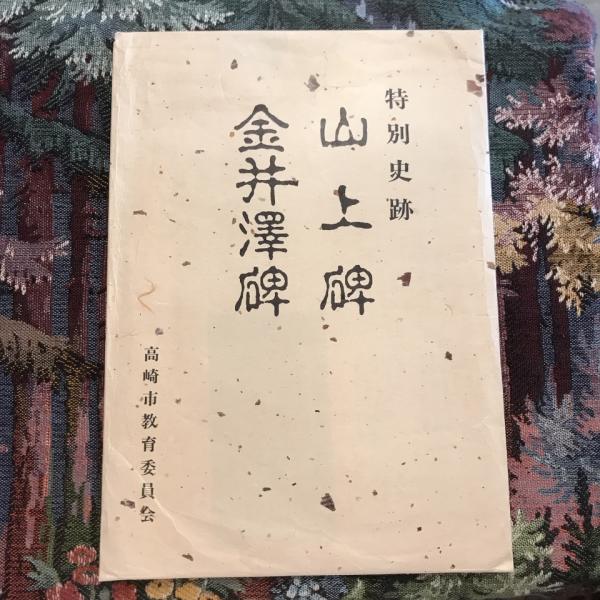 特別史跡
山上碑
金井澤碑
高崎市教育委員会